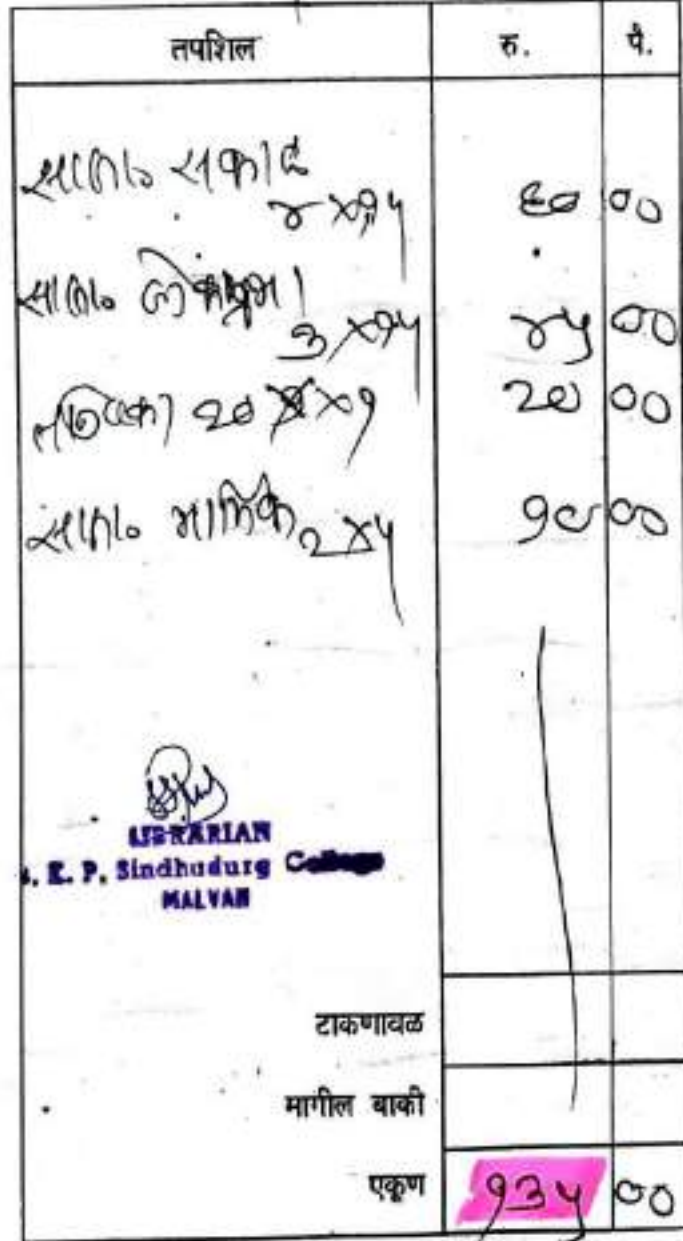 तपशिल रु. पै.
साप्ता० सकाळ
४ × १५ ६० ००
साप्ता० लोकप्रभा
३ × १५ ४५ ००
२० × १ २० ००
साप्ता० मार्मिक २ × ५ १० ००
LIBRARIAN
S. K. P. Sindhudurg College
MALVAN
टाकणावळ
मागील बाकी
एकूण १३५ ००